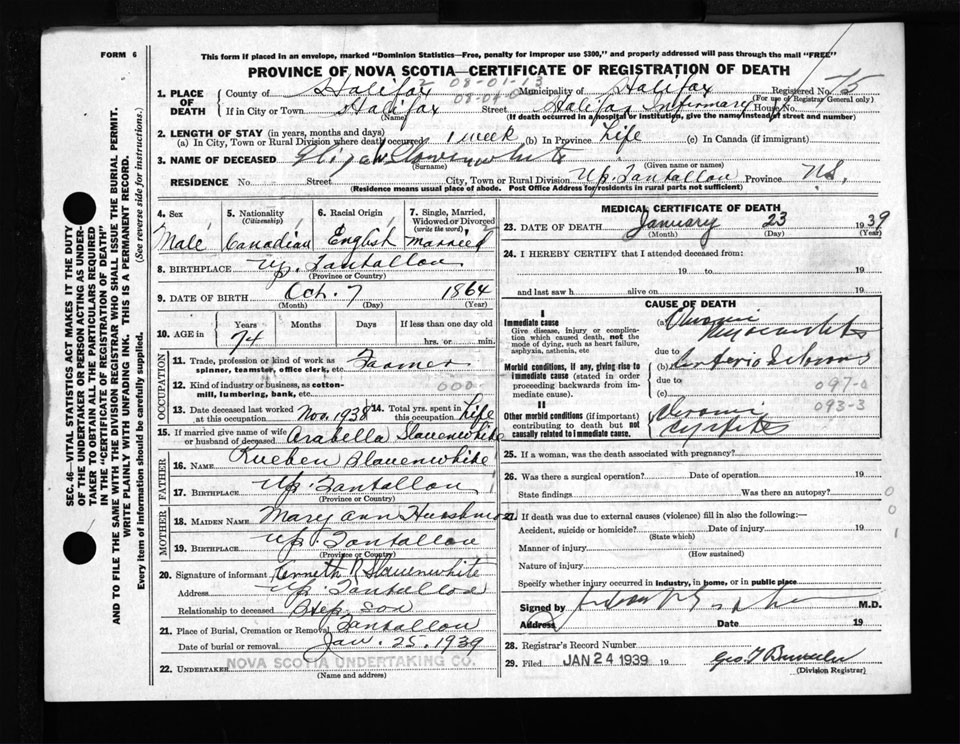 FORM 6
This form if placed in an envelope, marked "Dominion Statistics—Free, penalty for improper use $300," and properly addressed will pass through the mail "FREE"
PROVINCE OF NOVA SCOTIA—CERTIFICATE OF REGISTRATION OF DEATH
SEC. 46—VITAL STATISTICS ACT MAKES IT THE DUTY
OF THE UNDERTAKER OR PERSON ACTING AS UNDER-
TAKER TO OBTAIN ALL THE PARTICULARS REQUIRED
IN THE "CERTIFICATE OF DEATH"
AND TO FILE THE SAME WITH THE DIVISION REGISTRAR WHO SHALL ISSUE THE BURIAL PERMIT.
WRITE PLAINLY WITH UNFADING INK. THIS IS A PERMANENT RECORD.
Every item of information should be carefully supplied. (See reverse side for instructions.)
1. PLACE OF DEATH County of Halifax 08-01-13 Municipality of Halifax Registered No. 75
(For use of Registrar General only)
If in City or Town Halifax Street Halifax Infirmary House No.
(Name) (If death occurred in a hospital or institution, give the name instead of street and number)
2. LENGTH OF STAY (in years, months and days)
(a) In City, Town or Rural Division where death occurred 1 week (b) In Province Life (c) In Canada (if immigrant)
3. NAME OF DECEASED Slauenwhite
(Surname) (Given name or names)
RESIDENCE No. Street City, Town or Rural Division Up. Tantallon Province N.S.
(Residence means usual place of abode. Post Office Address for residents in rural parts not sufficient)
4. Sex 5. Nationality 6. Racial Origin 7. Single, Married,
(Citizenship) Widowed or Divorced
(write the word)
Male Canadian English Married
8. BIRTHPLACE Up. Tantallon
(Province or Country)
9. DATE OF BIRTH Oct. 7 1864
(Month) (Day) (Year)
10. AGE in Years Months Days If less than one day old
74 hrs. or min.
OCCUPATION
11. Trade, profession or kind of work as Farmer
spinner, teamster, office clerk, etc.
12. Kind of industry or business, as cotton- 000
mill, lumbering, bank, etc.
13. Date deceased last worked at this occupation Nov. 1938 14. Total yrs. spent in this occupation Life
15. If married give name of wife or husband of deceased Arabella Slauenwhite
FATHER
16. NAME Rueben Slauenwhite
17. BIRTHPLACE Up. Tantallon
(Province or Country)
MOTHER
18. MAIDEN NAME Mary Ann
19. BIRTHPLACE Up. Tantallon
(Province or Country)
20. Signature of informant Kenneth Slauenwhite
Address Up Tantallon
Relationship to deceased Step Son
21. Place of Burial, Cremation or Removal Tantallon
Date of burial or removal Jan. 25, 1939
22. UNDERTAKER NOVA SCOTIA UNDERTAKING CO.
(Name and address)
MEDICAL CERTIFICATE OF DEATH
23. DATE OF DEATH January 23 1939
(Month) (Day) (Year)
24. I HEREBY CERTIFY that I attended deceased from:
19 to 19
and last saw h alive on 19
CAUSE OF DEATH
I
Immediate cause
Give disease, injury or complica-
tion which caused death, not the
mode of dying, such as heart failure,
asphyxia, asthenia, etc
(a) Chronic Myocarditis
due to
Morbid conditions, if any, giving rise to
immediate cause (stated in order
proceeding backwards from im-
mediate cause).
(b) Arterio
due to 097-0
(c) 093-3
II
Other morbid conditions (if important)
contributing to death but not
causally related to immediate cause.
Chronic cystitis
25. If a woman, was the death associated with pregnancy?
26. Was there a surgical operation? Date of operation 19
State findings Was there an autopsy?
27. If death was due to external causes (violence) fill in also the following:—
Accident, suicide or homicide? Date of injury 19
(State which)
Manner of injury
(How sustained)
Nature of injury
Specify whether injury occurred in industry, in home, or in public place
Signed by M.D.
Address Date 19
28. Registrar's Record Number
29. Filed JAN 24 1939 19
(Division Registrar)